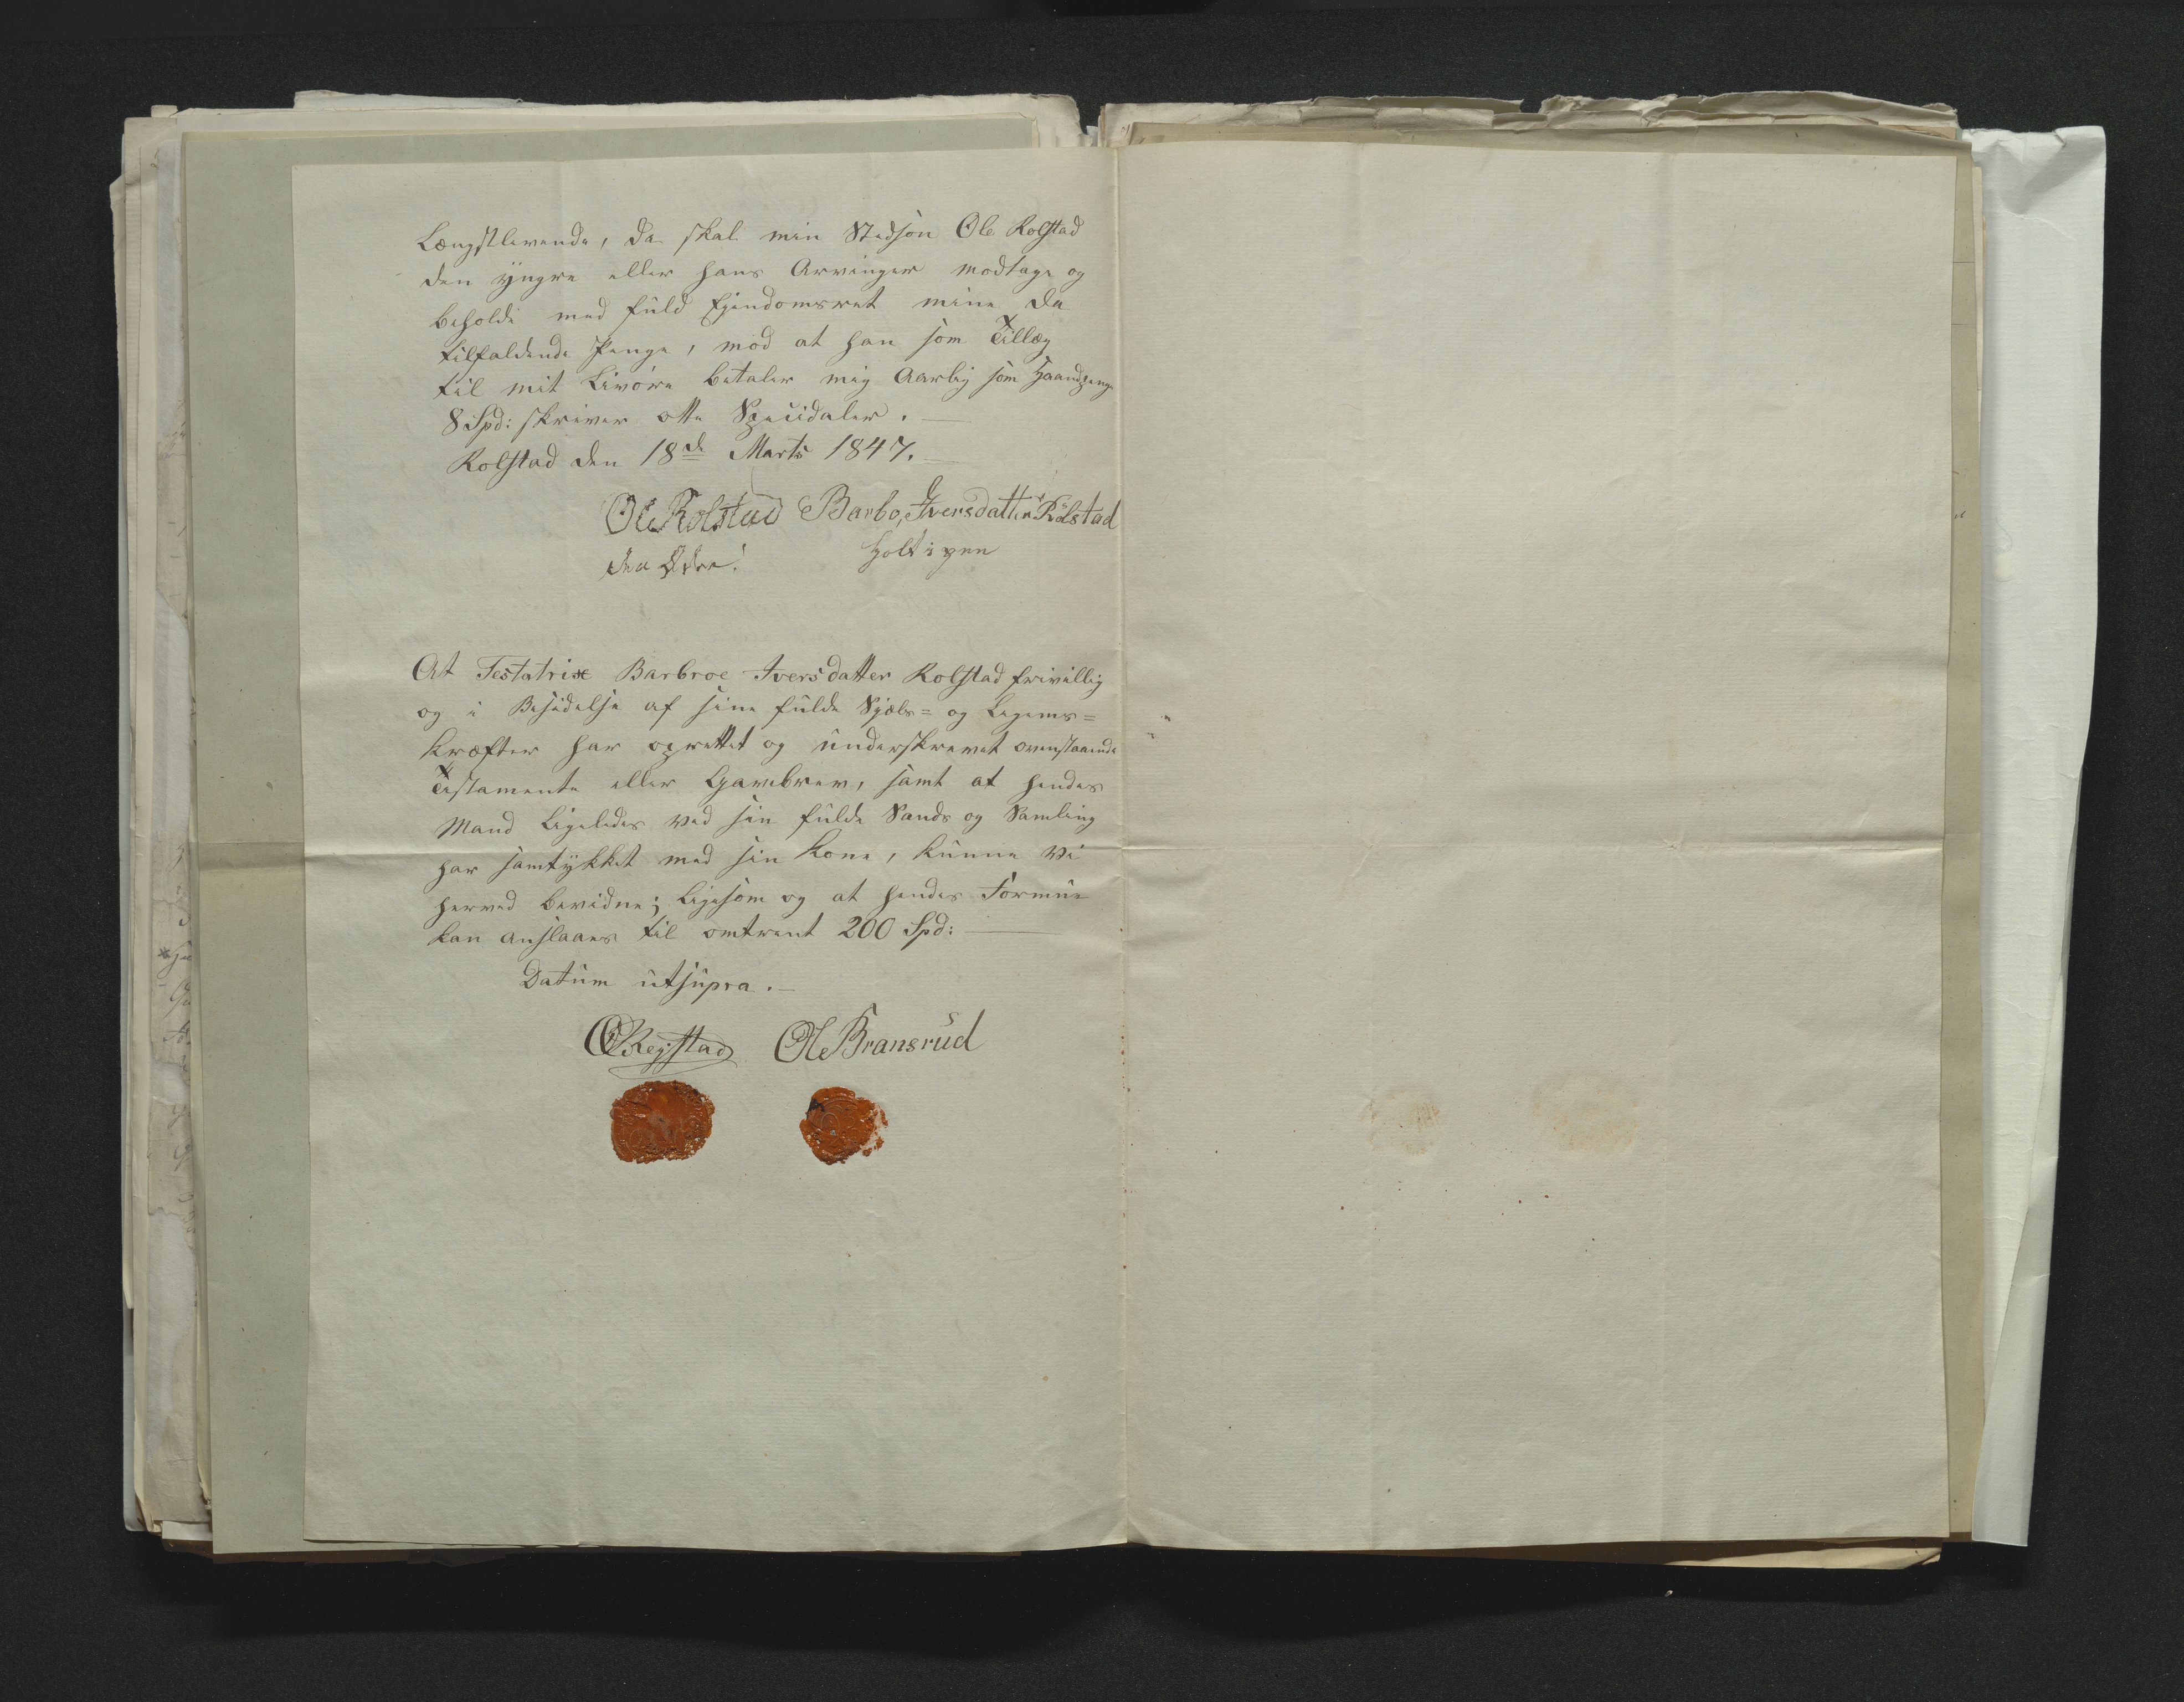 Længstlevende, da skal min Stedsøn Ole Kolstad
den yngre eller hans Arvinger modtage og
beholde med fuld Ejendomsret mine da
tilfaldende Penge, mod at han som Tillæg
til mit Livøre betaler mig Aarlig som Haandpenge
8 Spd: skriver otte Speciedaler. —
Kolstad den 18de Marts 1847. —
Ole Kolstad Barbo, Iversdatter Kolstad
den Eldre! holt i pen
At Testatrixe Barbroe Iversdatter Kolstad frivillig
og i Besidelse af sine fulde Sjæls= og Legems=
kræfter har oprettet og underskrevet ovenstaaende
Testamente eller Gavebrev, samt at hendes
Mand ligeledes ved sin fulde Sands og Samling
har samtykket med sin Kone, kunne vi
herved bevidne; ligesom og at hendes Formue
kan anslaaes til omtrent 200 Spd: —
Datum utsupra. —
Ole Bransrud